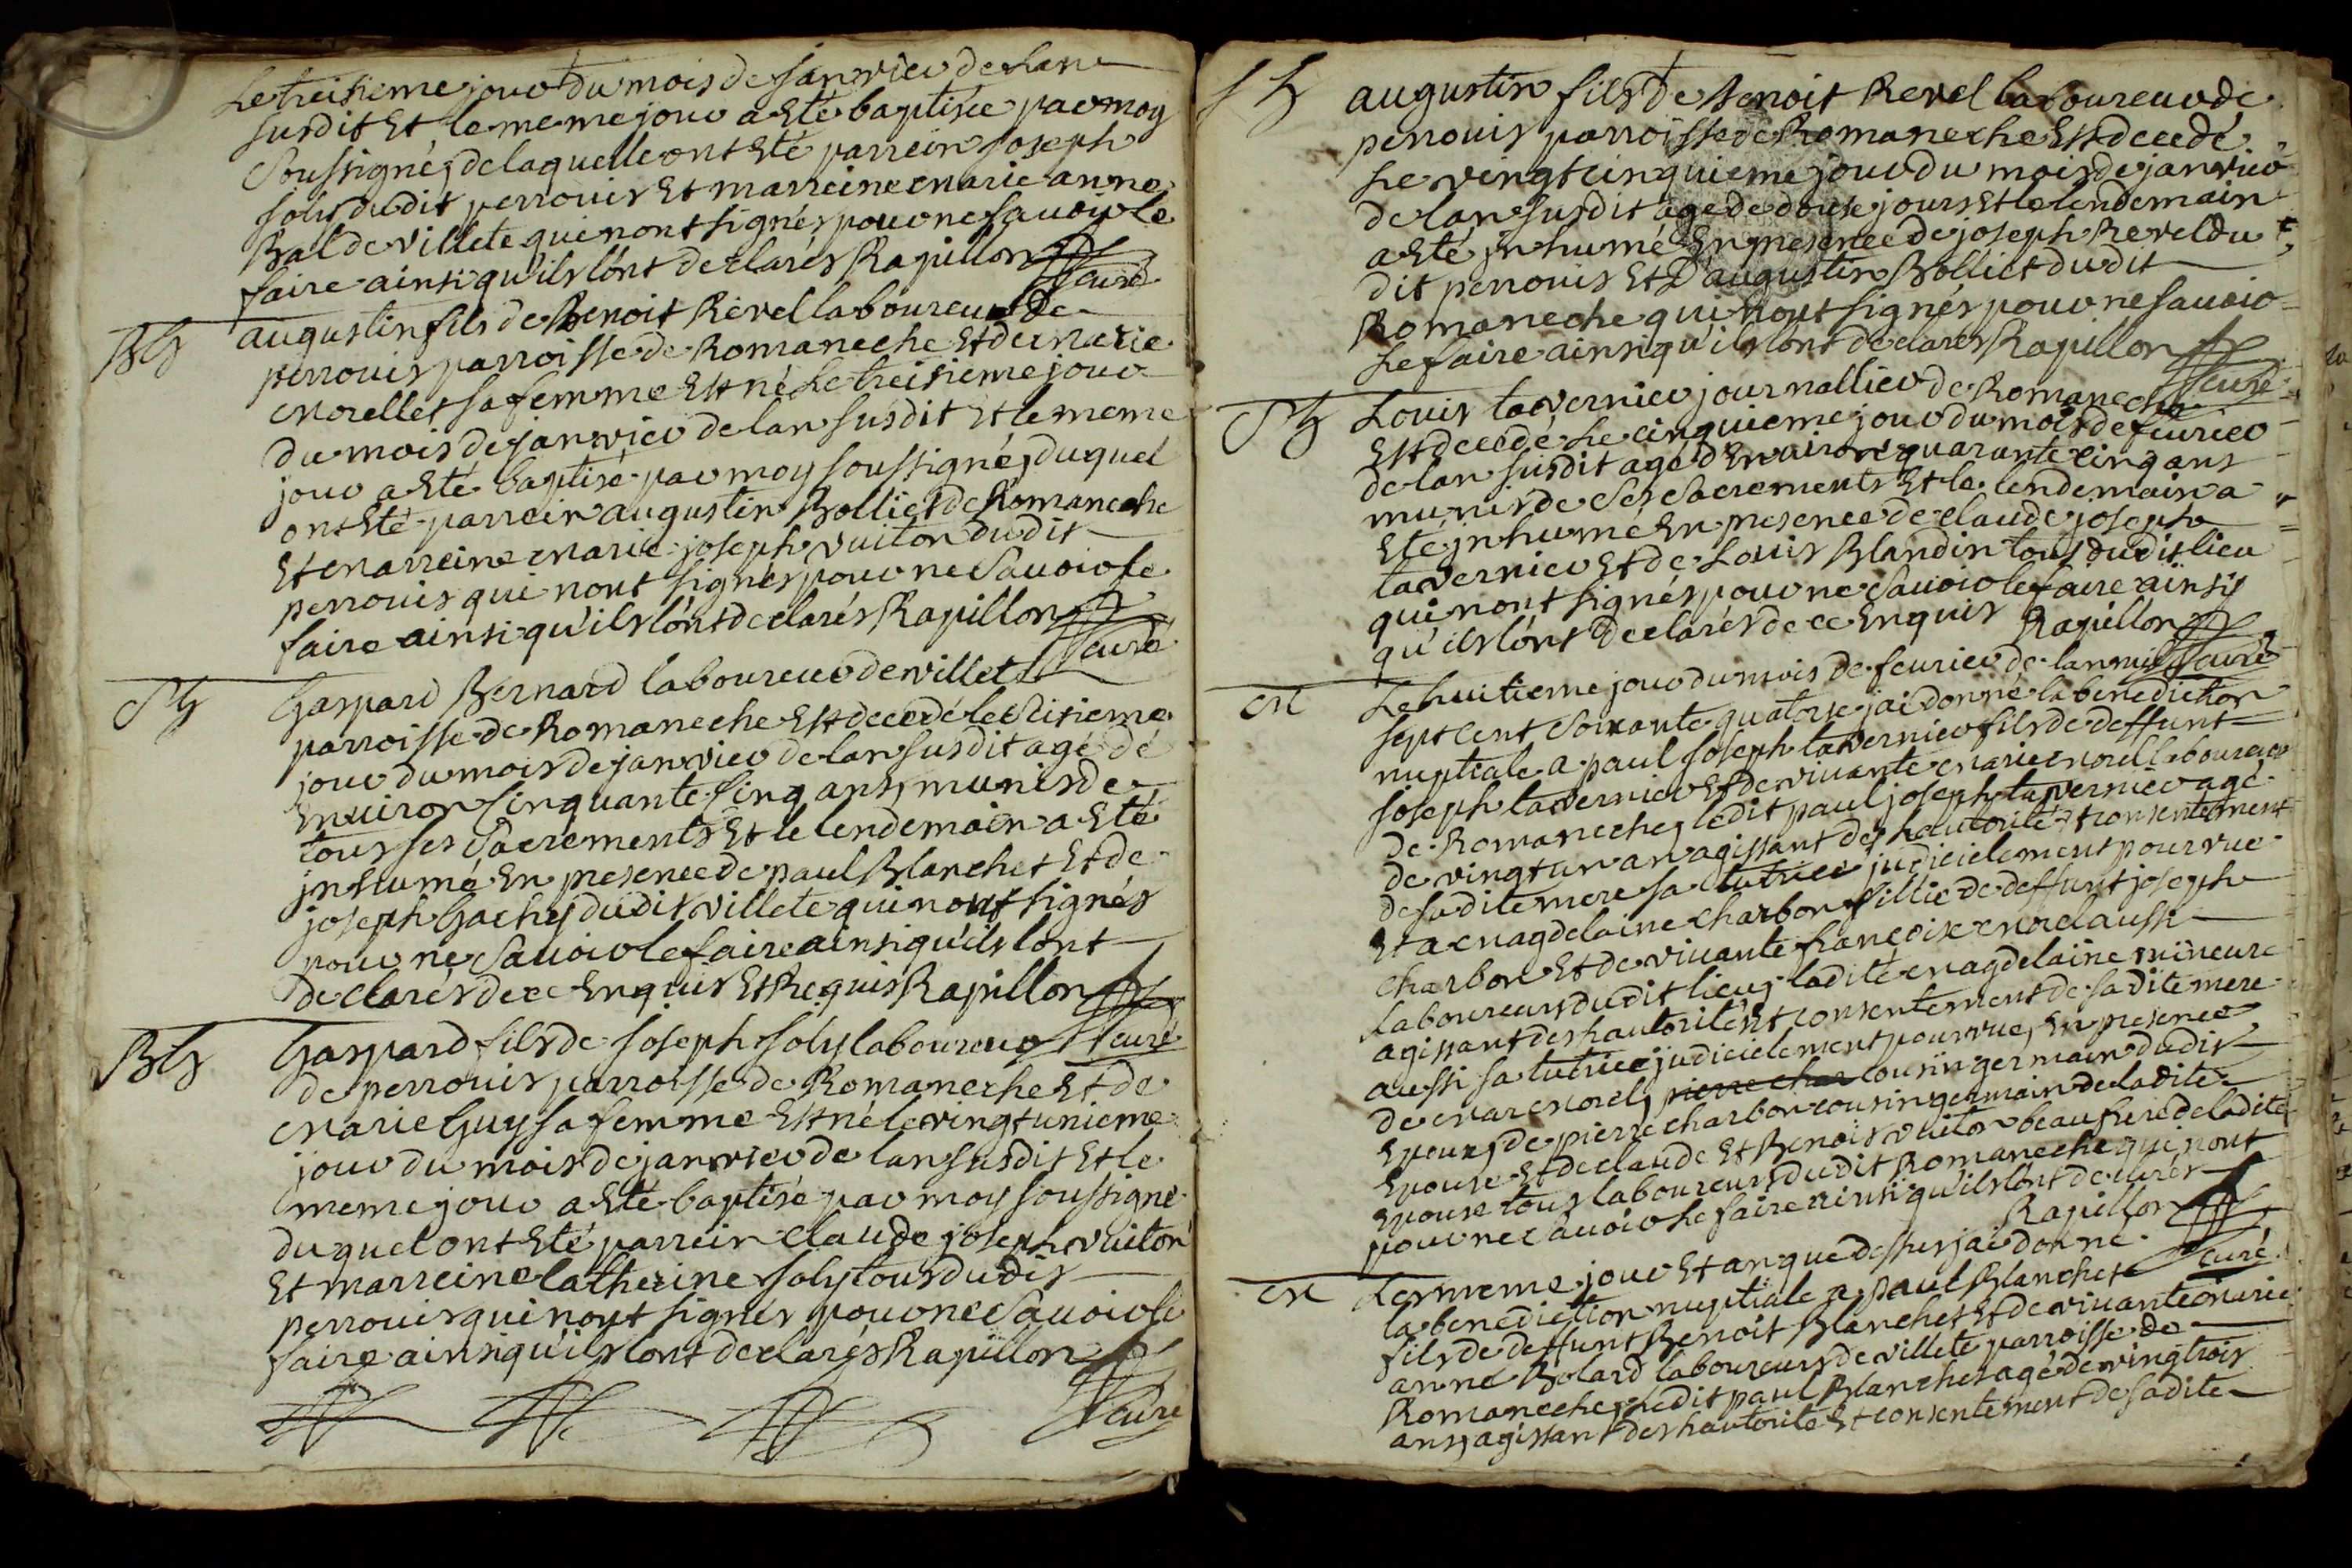 Le treisieme jour du mois de janvier de lan
susdit Et le meme jour a Eté baptisée par moy
soussigné, de laquelle ont Eté parrein joseph
joly dudit perrouis Et marreine marie anne
Bal de villete qui nont signés pour ne savoir le
faire ainsi qu'ils lónt declarés Rapillon
curé
Bs augustin fils de Benoit Revel laboureur de
perrouis parroisse de Romaneche Et de marie
morellet sa femme Est né le treisieme jour
du mois de janvier de lan susdit Et le meme
jour a Eté baptisé par moy soussigné, duquel
ont Eté parrein augustin Bolliet de Romaneche
Et marreine marie joseph vuiton dudit
perrouis qui nont signés pour ne savoir le
faire ainsi qu'ils lónt declarés Rapillon
curé
Sh Gaspard Bernard laboureur de villete
parroisse de Romaneche Est decedé le disieme
jour du mois de janvier de lan susdit agé de
Environ Cinquante Cinq ans, munis de
tous ses Sacrements Et le lendemain a Eté
jnhumé En presence de paul Blanchet Et de
joseph Gachy dudit villete qui nont signés
pour ne savoir le faire ainsi qu'ils lont
declarés de ce Enquis Et Requis Rapillon
curé
Bs Gaspard fils de joseph joly laboureur
de perrouis parroisse de Romaneche Et de
marie Guy sa femme Est né le vingt unieme
jour du mois de janvier de lan susdit Et le
meme jour a Eté baptisé par moy soussigné
duquel ont Eté parrein claude joseph vuiton
Et marreine Catherine joly tous dudit
perrouis qui nont signés pour ne savoir le
faire ainsi qu'ils lont declarés Rapillon
curé
Sh augustin fils de Benoit Revel laboureur de
perrouis parroisse de Romaneche Est decedé
le vingt cinquieme jour du mois de janvier
de lan susdit agé de douse jours Et le lendemain
a Eté jnhumé En presence de joseph Revel du
dit perrouis Et D'augustin Bolliet dudit
Romaneche qui nont signés pour ne savoir
le faire ainsi qu'ils lont declarés Rapillon
curé
Sh Louis tavernier journallier de Romaneche
Est decedé le cinquieme jour du mois de feuvrier
de lan susdit agé d'Environ quarante cinq ans
munis de ses Sacrements Et le lendemain a
Eté jnhumé En presence de claude joseph
tavernier Et de Louis Blandin tous dudit lieu
qui nont signés pour ne savoir le faire ainsy
qu'ils lónt declarés de ce Enquis Rapillon
curé
M Le huitieme jour du mois de feuvrier de lan mil
sept cent soixante quatorse jai donné la benediction
nuptiale a paul joseph tavernier fils de deffunt
joseph tavernier Et de vivante marie morel laboureur
de Romaneche, ledit paul joseph tavernier agé
de vingt un an agissant des hautorité Et consentement
de sadite mere sa tutrice judicielement pourvue
Et a magdelaine charbon fillie de deffunt joseph
charbon Et de vivante françoise morel aussi
laboureurs dudit lieu, ladite magdelaine mineure
agissant des hautorité Et consentement de sadite mere
aussi sa tutrice judicielement pourvue, En presence
de marc morel, pierre char cousin germain dudit
Epoux, de pierre charbon cousin germain de ladite
Epouse Et de claude Et Benoit vuiton beau frere de ladite
Epouse tous laboureurs dudit Romaneche qui nont
pour ne savoir le faire ainsi qu'ils lónt
Rapillon
curé
M Le meme jour Et an que dessus jai donné
la benediction nuptiale a paul Blanchet
fils de deffunt Benoit Blanchet Et de vivante marie
anne Bolard laboureurs de villete parroisse de
Romaneche, ledit paul Blanchet agé de vingt trois
ans, agissant des hautorité Et consentement de sadite